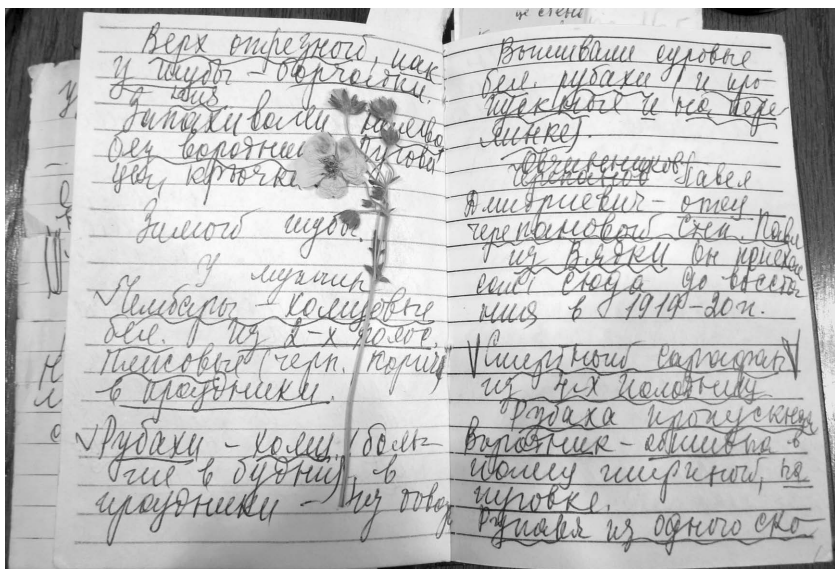 Верх отрезной, как
у шубы – борчатки.
Запахивали налево
без воротника
цеп крючки
Зимой шубы.
У мужчин
Чембары – холщовые
бел. из 2-х полос.
Плисовые (черн. корич
в праздники.
Рубахи – холщ. (боль-
ше в будни) в
праздники – из
Вышивали суровые
бел. рубахи (и про-
пускные и на пере-
линке).
Овчинников
Павел
Дмитриевич – отец
Черепановой Пав
из Вятки он приехал
сюда до восста-
ния в 1919–20 г.
Смертный сарафан
из 4-х полотниц.
Рубаха пропускная
Воротник – обшивка в
палец шириной, на
пуговке.
Рукавя из одного ско